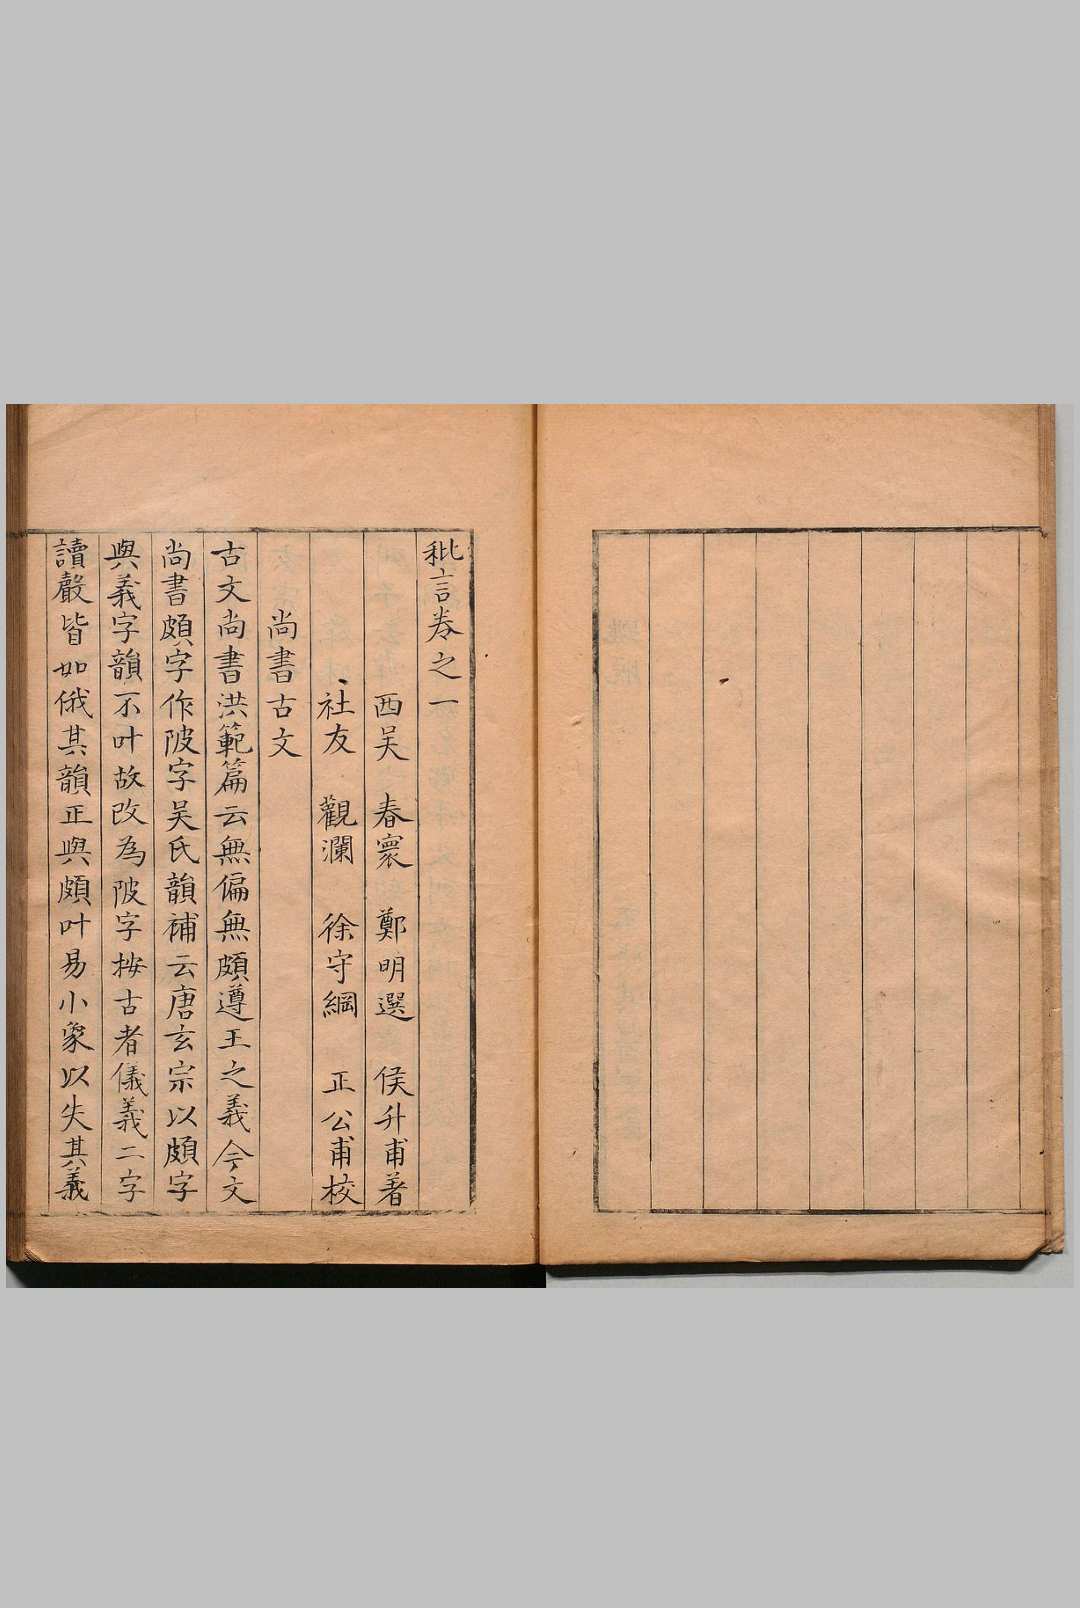 秕言卷之一
西吴 春寰 鄭明選 侯升甫著
社友 觀瀾 徐守綱 正公甫校
尚書古文
古文尚書洪範篇云無偏無頗遵王之義今文
尚書頗字作陂字吴氏韻補云唐玄宗以頗字
與義字韻不叶故改為陂字按古者儀義二字
讀聲皆如俄其韻正與頗叶易小象以失其義